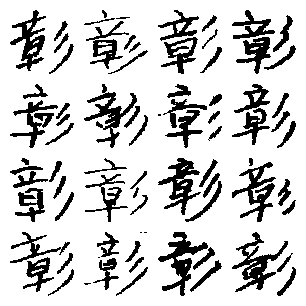 彰彰彰彰
彰彰彰彰
彰彰彰彰
彰彰彰彰